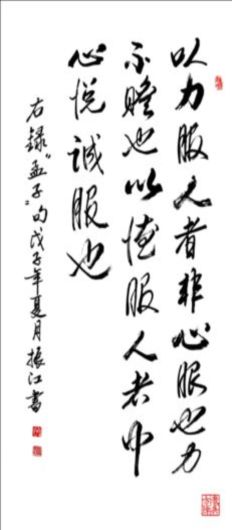 以力服人者非心服也力
不赡也以德服人者中
心悦诚服也
右录“孟子”句戊子年夏月振江书